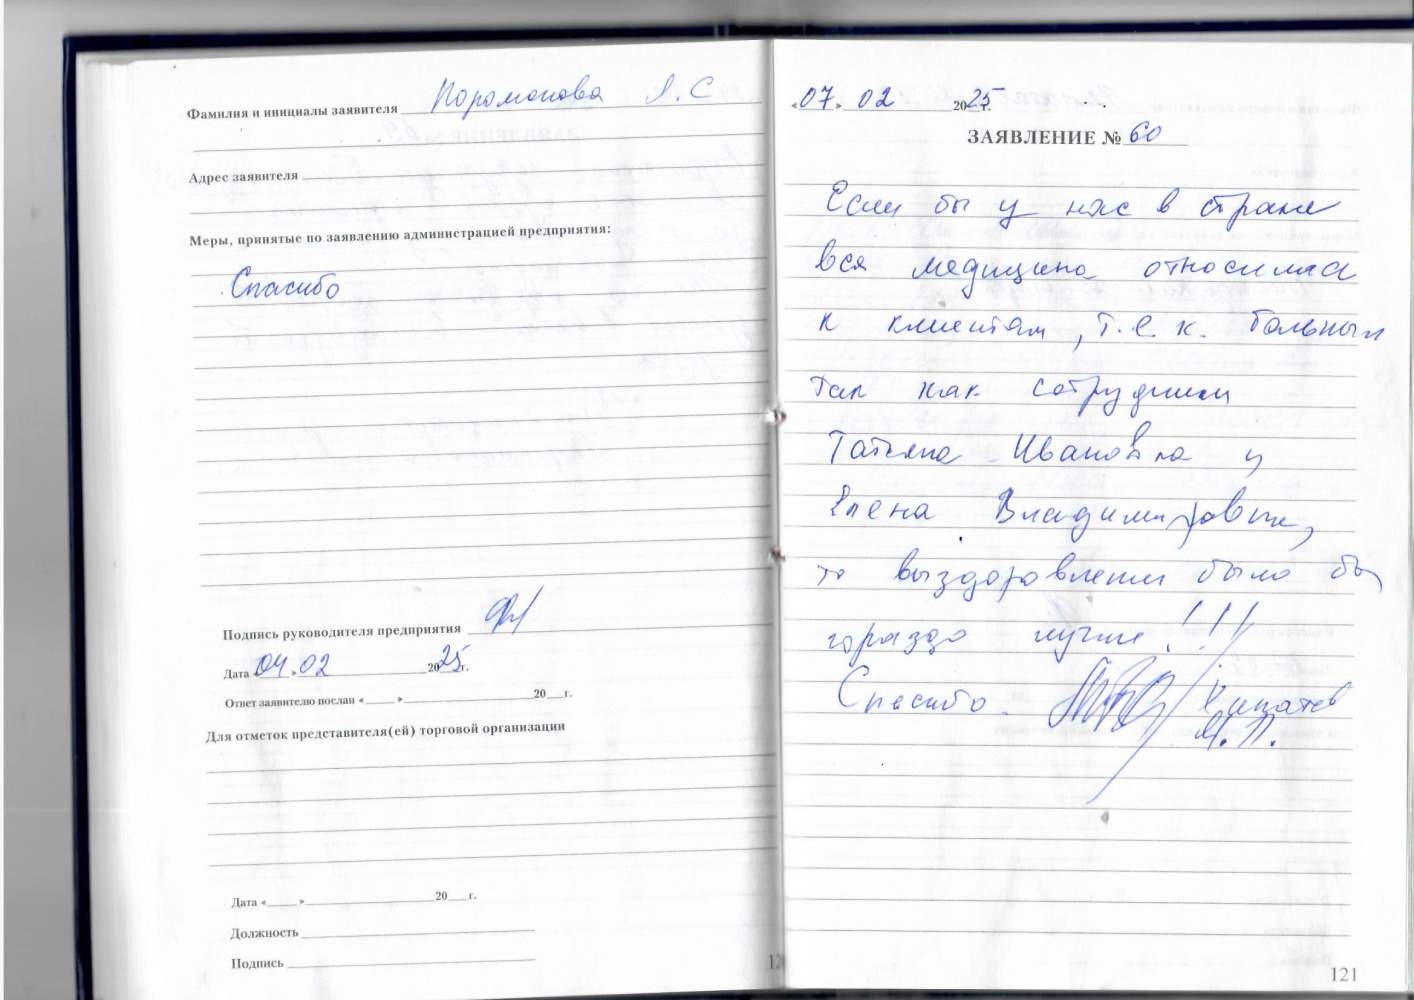 Фамилия и инициалы заявителя Поромонова Л.С
Адрес заявителя
Меры, принятые по заявлению администрацией предприятия:
Спасибо
Подпись руководителя предприятия
Дата «04» 02 2025г.
Ответ заявителю послан « » 20 г.
Для отметок представителя(ей) торговой организации
Дата « » 20 г.
Должность
Подпись
«07» 02 2025г.
ЗАЯВЛЕНИЕ № 60
Если бы у нас в стране
вся медицина относилась
к клиентам, т.е к. больным
так как сотрудники
Татьяна Ивановна и
Елена Владимировна,
то выздоровление было бы
гораздо лучше!!!
Спасибо.
М.П.
121